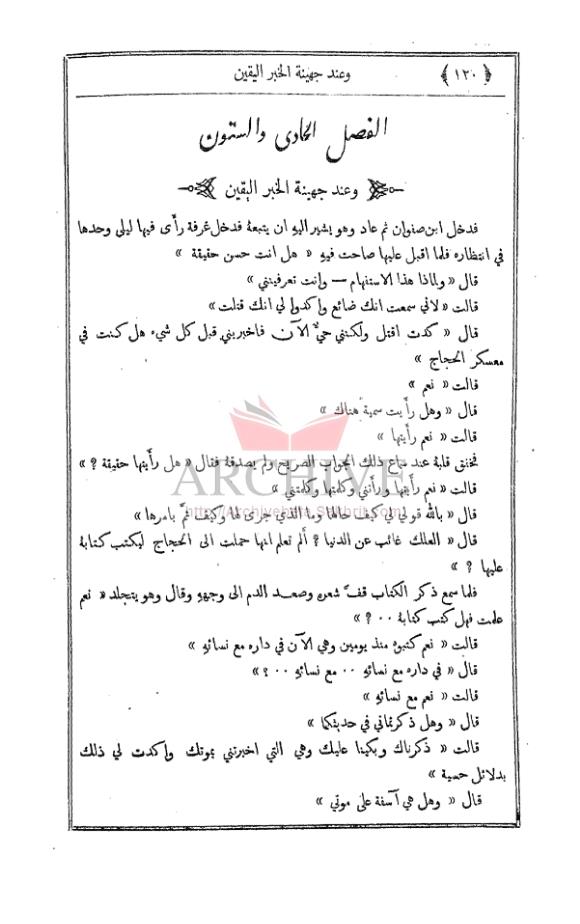 ﴿ ١٢٠ ﴾ وعند جهينة الخبر اليقين
الفصل الحادى والستون
وعند جهينة الخبر اليقين
فدخل ابن صفوان ثم عاد وهو يشير اليه ان يتبعه فدخل غرفة رأى فيها ليلى وحدها
في انتظاره فلما اقبل عليها صاحت فيه « هل انت حسن حقيقة »
قال « ولماذا هذا الاستفهام — وانت تعرفينني »
قالت « لاني سمعت انك ضائع واكدوا لي انك قتلت »
قال « كدت اقتل ولكنني حيٌّ الآن فاخبريني قبل كل شيء هل كنت في
معسكر الحجاج »
قالت « نعم »
قال « وهل رأيت سمية هناك »
قالت « نعم رأيتها »
فخفق قلبه عند سماع ذلك الجواب الصريح ولم يصدقه فقال « هل رأيتها حقيقة ؟ »
ARCHIVE
قالت « نعم رأيتها ورأتني وكلمتها وكلمتني »
http://Archivebeta.Sakhrit.com
قال « بالله قولي لي كيف حالها وما الذي جرى لها وكيف تمَّ بامرها »
قال « العلك غائب عن الدنيا ؟ ألم تعلم انها حملت الى الحجاج ليكتب كتابه
عليها ؟ »
فلما سمع ذكر الكتاب قفَّ شعره وصعد الدم الى وجهه وقال وهو يتجلد « نعم
علمت فهل كتب كتابه ٠٠ ؟ »
قالت « نعم كتبوه منذ يومين وهي الآن في داره مع نسائه »
قال « في داره مع نسائه ٠٠ مع نسائه ٠٠ ؟ »
قالت « نعم مع نسائه »
قال « وهل ذكرتماني في حديثكما »
قالت « ذكرناك وبكينا عليك وهي التي اخبرتني بموتك واكدت لي ذلك
بدلائل حسية »
قال « وهل هي آسفة على موتي »